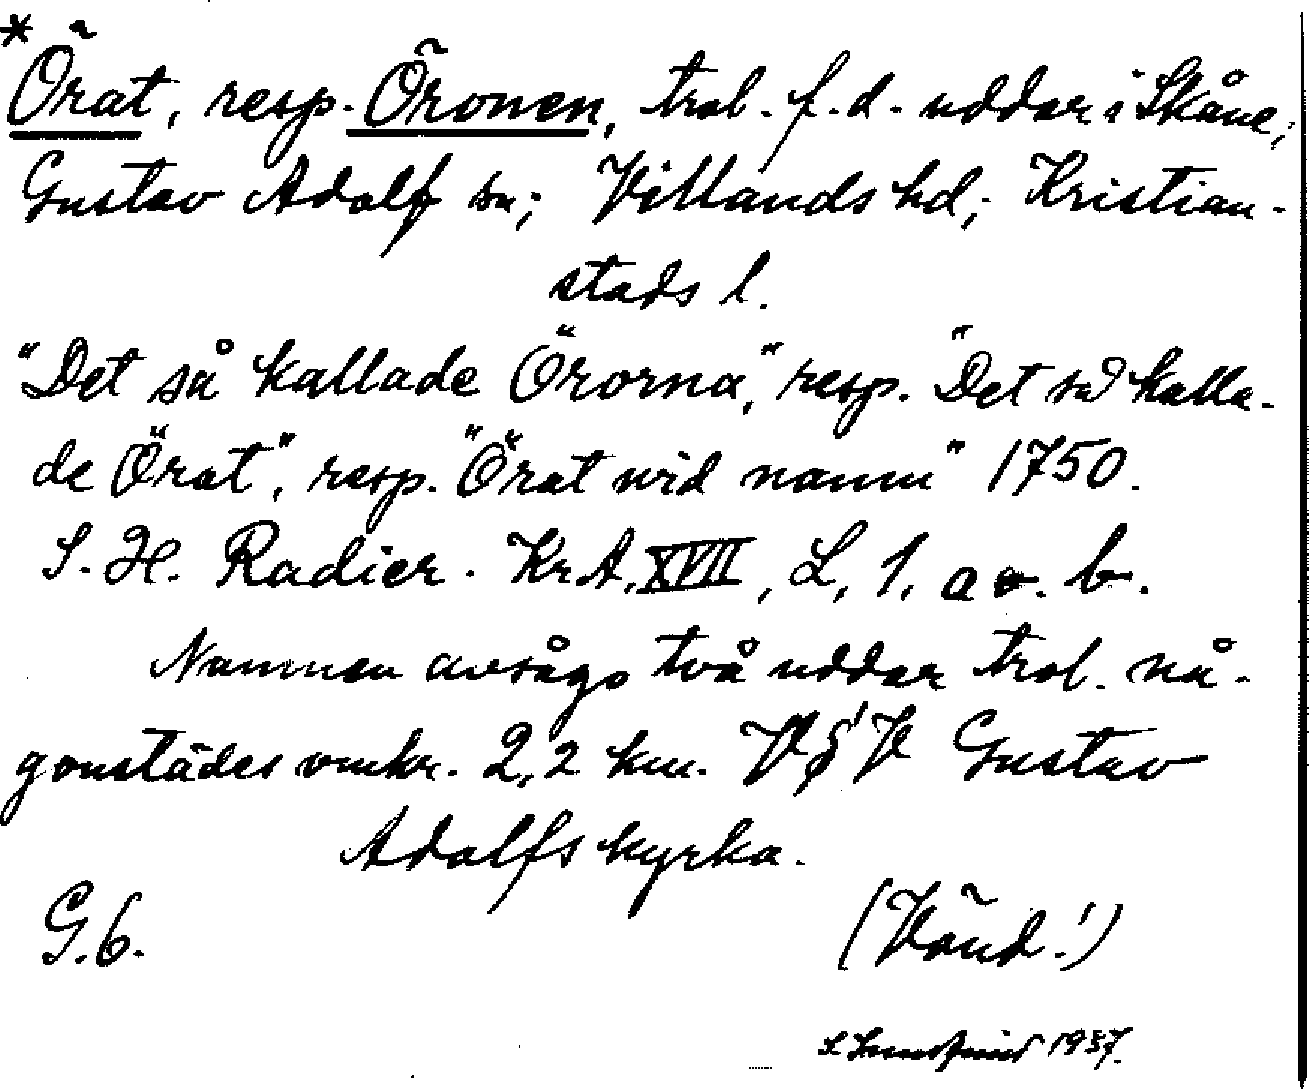 *Örat, resp. Öronen, trol. f.d. uddar i Skåne;
Gustav Adolf sn; Villands hd; Kristian-
stads l.
"Det så kallade Örorna", resp. "Det så kalla-
de Örat", resp. "Örat wid namn" 1750.
S. H. Radier. KrA, XVII, L, 1, a o. b.
Namnen avsågo två uddar trol. nå-
gonstädes omkr. 2,2 km. Gustav
Adolfs kyrka.
G.6. (Vänd!)
1937.